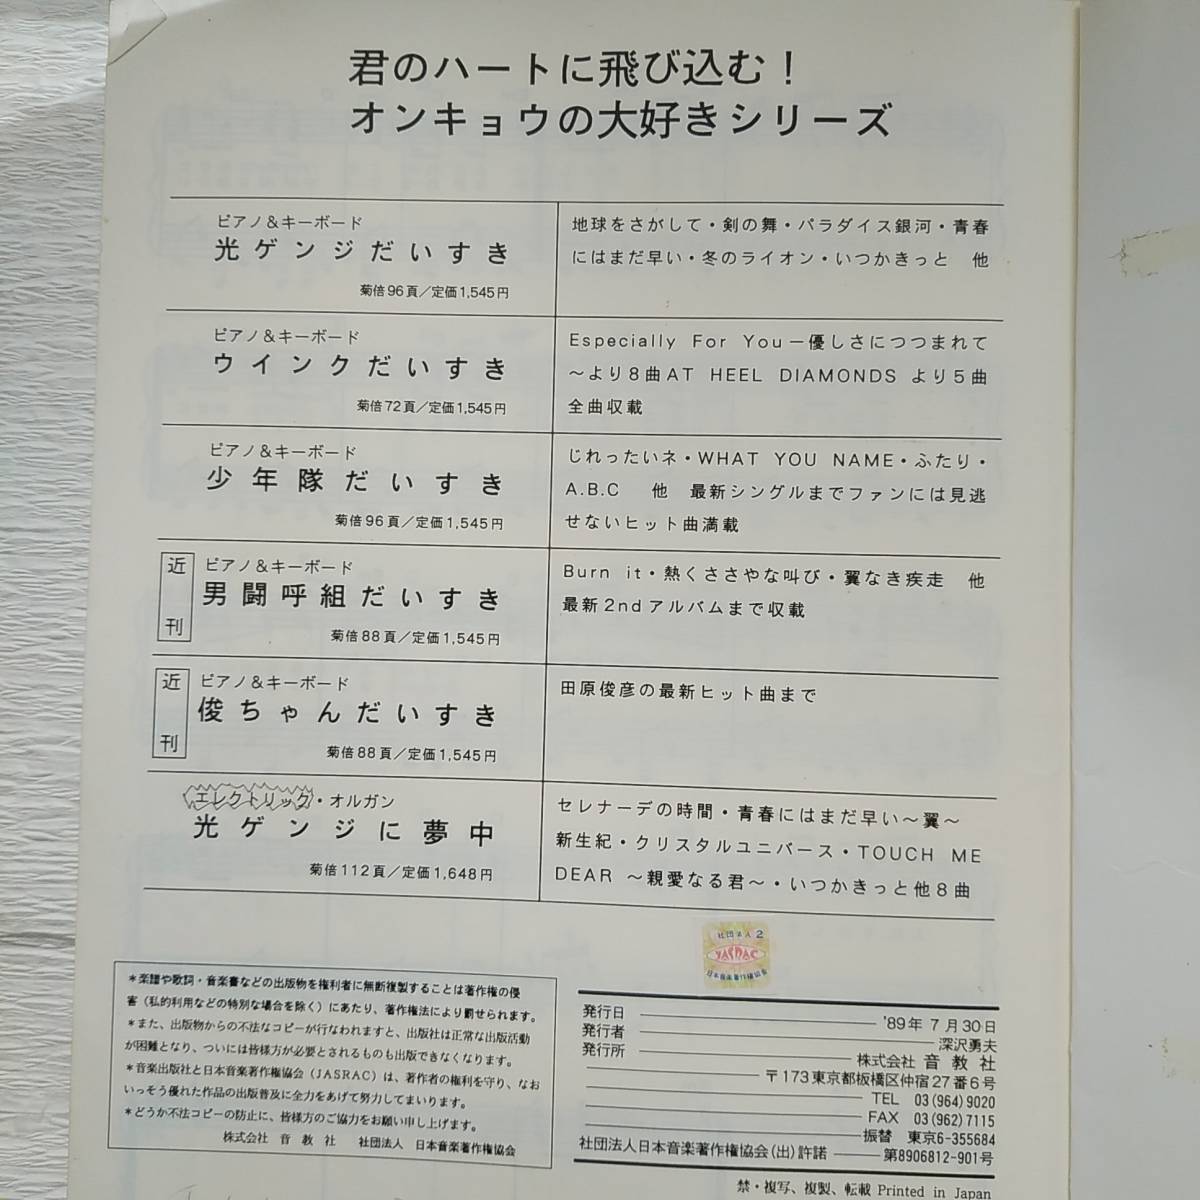 君のハートに飛び込む！
オンキョウの大好きシリーズ
ピアノ＆キーボード
光ゲンジだいすき
菊倍96頁／定価1,545円
地球をさがして・剣の舞・パラダイス銀河・青春
にはまだ早い・冬のライオン・いつかきっと　他
ピアノ＆キーボード
ウインクだいすき
菊倍72頁／定価1,545円
Especially For You－優しさにつつまれて
～より8曲AT HEEL DIAMONDS より5曲
全曲収載
ピアノ＆キーボード
少年隊だいすき
菊倍96頁／定価1,545円
じれったいネ・WHAT YOU NAME・ふたり・
A.B.C　他　最新シングルまでファンには見逃
せないヒット曲満載
近刊
ピアノ＆キーボード
男闘呼組だいすき
菊倍88頁／定価1,545円
Burn it・熱くささやな叫び・翼なき疾走　他
最新2ndアルバムまで収載
近刊
ピアノ＆キーボード
俊ちゃんだいすき
菊倍88頁／定価1,545円
田原俊彦の最新ヒット曲まで
エレクトリック・オルガン
光ゲンジに夢中
菊倍112頁／定価1,648円
セレナーデの時間・青春にはまだ早い～翼～
新生紀・クリスタルユニバース・TOUCH ME
DEAR ～親愛なる君～・いつかきっと他8曲
社団法人 2
JASRAC
日本音楽著作権協会
＊楽譜や歌詞・音楽書などの出版物を権利者に無断複製することは著作権の侵
害（私的利用などの特別な場合を除く）にあたり、著作権法により罰せられます。
＊また、出版物からの不法なコピーが行なわれますと、出版社は正常な出版活動
が困難となり、ついには皆様方が必要とされるものも出版できなくなります。
＊音楽出版社と日本音楽著作権協会（JASRAC）は、著作者の権利を守り、なお
いっそう優れた作品の出版普及に全力をあげて努力してまいります。
＊どうか不法コピーの防止に、皆様方のご協力をお願い申し上げます。
株式会社 音教社　社団法人 日本音楽著作権協会
発行日 '89年7月30日
発行者 深沢勇夫
発行所 株式会社 音教社
〒173東京都板橋区仲宿27番6号
TEL 03(964)9020
FAX 03(962)7115
振替 東京6-355684
社団法人日本音楽著作権協会(出)許諾 第8906812-901号
禁・複写、複製、転載 Printed in Japan